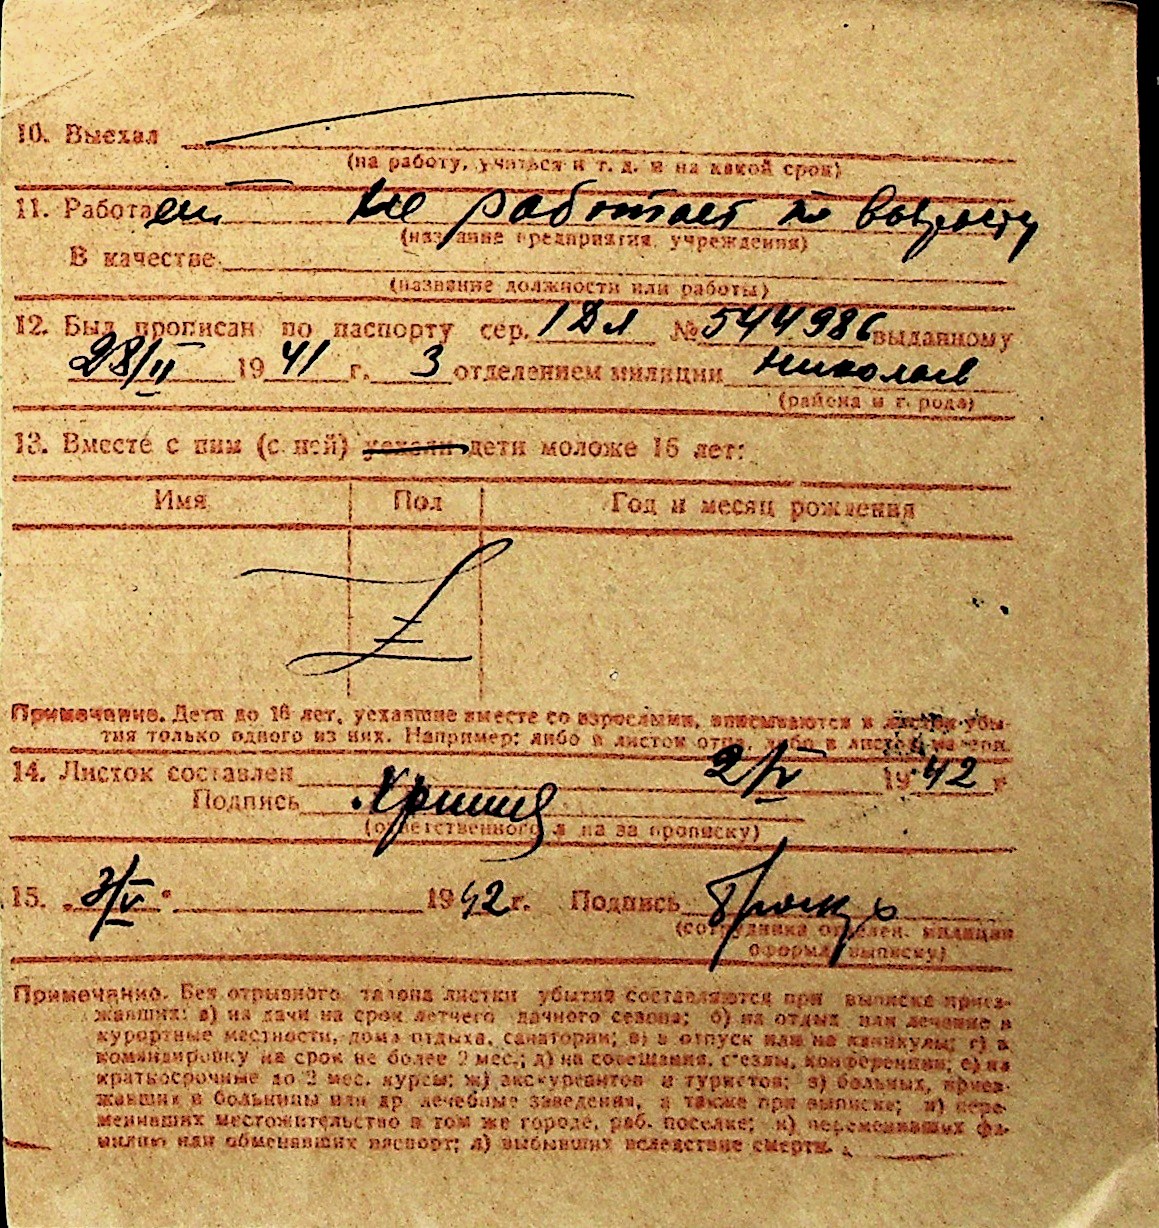 10. Выехал
(на работу, учиться и т. д. и на какой срок)
11. Работает не работает по возрасту
(название предприятия, учреждения)
В качестве
(название должности или работы)
12. Был прописан по паспорту сер. 1 Дл № 544986 выданному
28/II 1941 г. 3 отделением милиции Николаев
(района и города)
13. Вместе с ним (с ней) уехали дети моложе 16 лет:
Имя Пол Год и месяц рождения
Примечание. Дети до 16 лет, уехавшие вместе со взрослыми, вписываются в листки убы-
тия только одного из них. Например: либо в листок отца, либо в листок матери.
14. Листок составлен 2/V 1942 г
Подпись
(ответственного л на за прописку)
15. „3/V" 1942 г. Подпись
(сотрудника отделен. милиции
оформл выписку)
Примечание. Без отрывного талона листки убытия составляются при выписке приез-
жавших: а) на дачи на срок летнего дачного сезона; б) на отдых или лечение в
курортные местности, дома отдыха, санатории; в) в отпуск или на каникулы; г) в
командировку на срок не более 2 мес.; д) на совещания, съезды, конференции; е) на
краткосрочные до 2 мес. курсы; ж) экскурсантов и туристов; з) больных, приез-
жавших в больницы или др. лечебные заведения, а также при выписке; и) пере-
менивших местожительство в том же городе, раб. поселке; к) переменивших фа-
милию или обменявших паспорт; л) выбывших вследствие смерти.